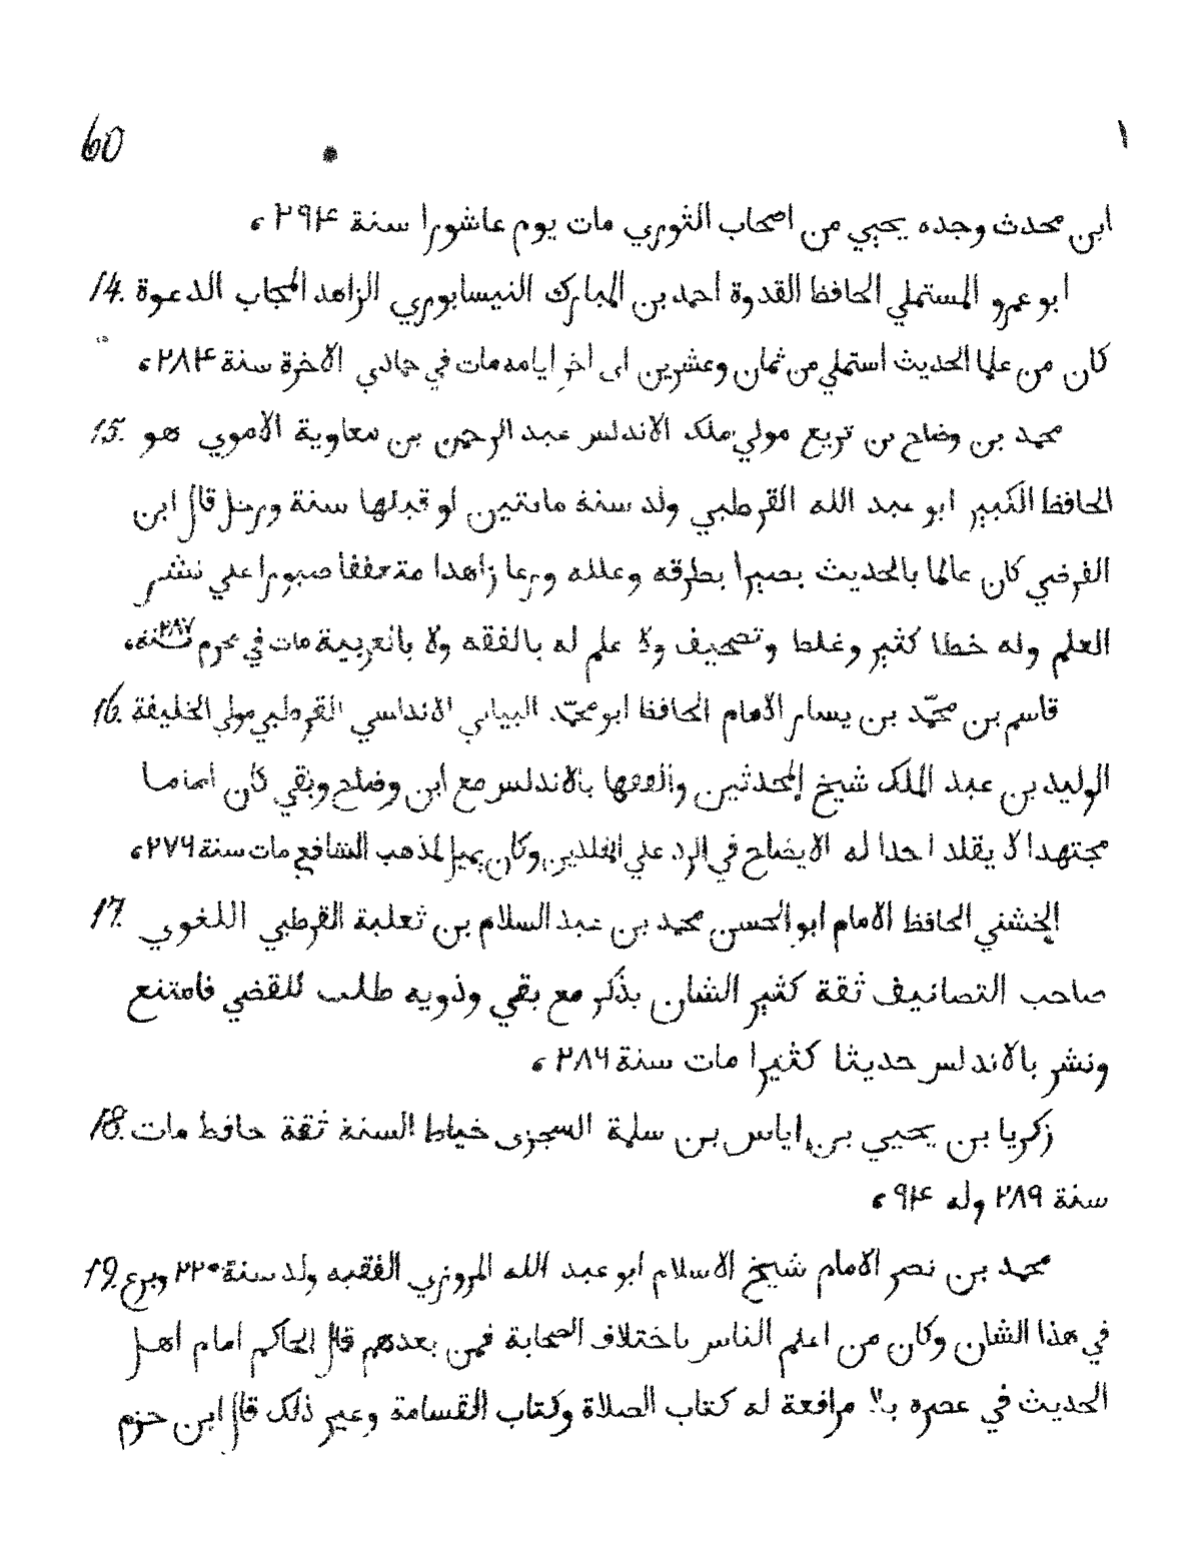 60 ١
ابن محدث وجده يحيي من اصحاب الثوري مات يوم عاشورا سنة ٢٩٤،
14. ابو عمرو المستملي الحافظ القدوة احمد بن المبارك النيسابوري الزاهد المجاب الدعوة
كان من علما الحديث استملي من ثمان وعشرين الى آخر ايامه مات في جمادي الاخرة سنة ٢٨٤،
15. محمد بن وضاح بن تريع مولي ملك الاندلس عبد الرحمن بن معاوية الاموي هو
الحافظ الكبير ابو عبد الله القرطبي ولد سنة مائتين او قبلها سنة ورحل قال ابن
الفرضي كان عالما بالحديث بصيرا بطرقه وعلله ورعا زاهدا متعففا صبورا علي نشر
العلم وله خطا كثير وغلط وتصحيف ولا علم له بالفقه ولا بالعربية مات في محرم سنة ٢٨٧،
16. قاسم بن محمّد بن يسار الامام الحافظ ابو محمّد البياني الاندلسي القرطبي مولي الخليفة
الوليد بن عبد الملك شيخ المحدثين والفقها بالاندلس مع ابن وضاح وبقي كان اماما
مجتهدا لا يقلد احدا له الايضاح في الرد علي المقلدين وكان يميل لمذهب الشافعي مات سنة ٢٧٦،
17. الخشني الحافظ الامام ابو الحسن محمد بن عبد السلام بن ثعلبة القرطبي اللغوي
صاحب التصانيف ثقة كثير الشان يذكر مع بقي وذويه طلب للقضي فامتنع
ونشر بالاندلس حديثا كثيرا مات سنة ٢٨٦،
18. زكريا بن يحيي بن اياس بن سلمة السجزى خياط السنة ثقة حافظ مات
سنة ٢٨٩ وله ٩٤،
19. محمد بن نصر الامام شيخ الاسلام ابو عبد الله المروزي الفقيه ولد سنة ٢٢٠ وبرع
في هذا الشان وكان من اعلم الناس باختلاف الصحابة فمن بعدهم قال الحاكم امام اهل
الحديث في عصره بلا مرافعة له كتاب الصلاة وكتاب القسامة وغير ذلك قال ابن حزم